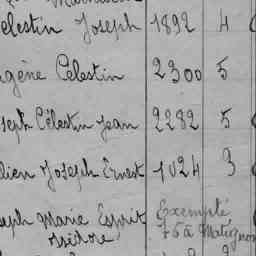 elestin Joseph 1892 4
gène Celestin 2300 5
seph Célestin Jean 2282 5
lien Joseph Ernest 1024 3
seph Marie Esprit Exempté
75 à Matignon